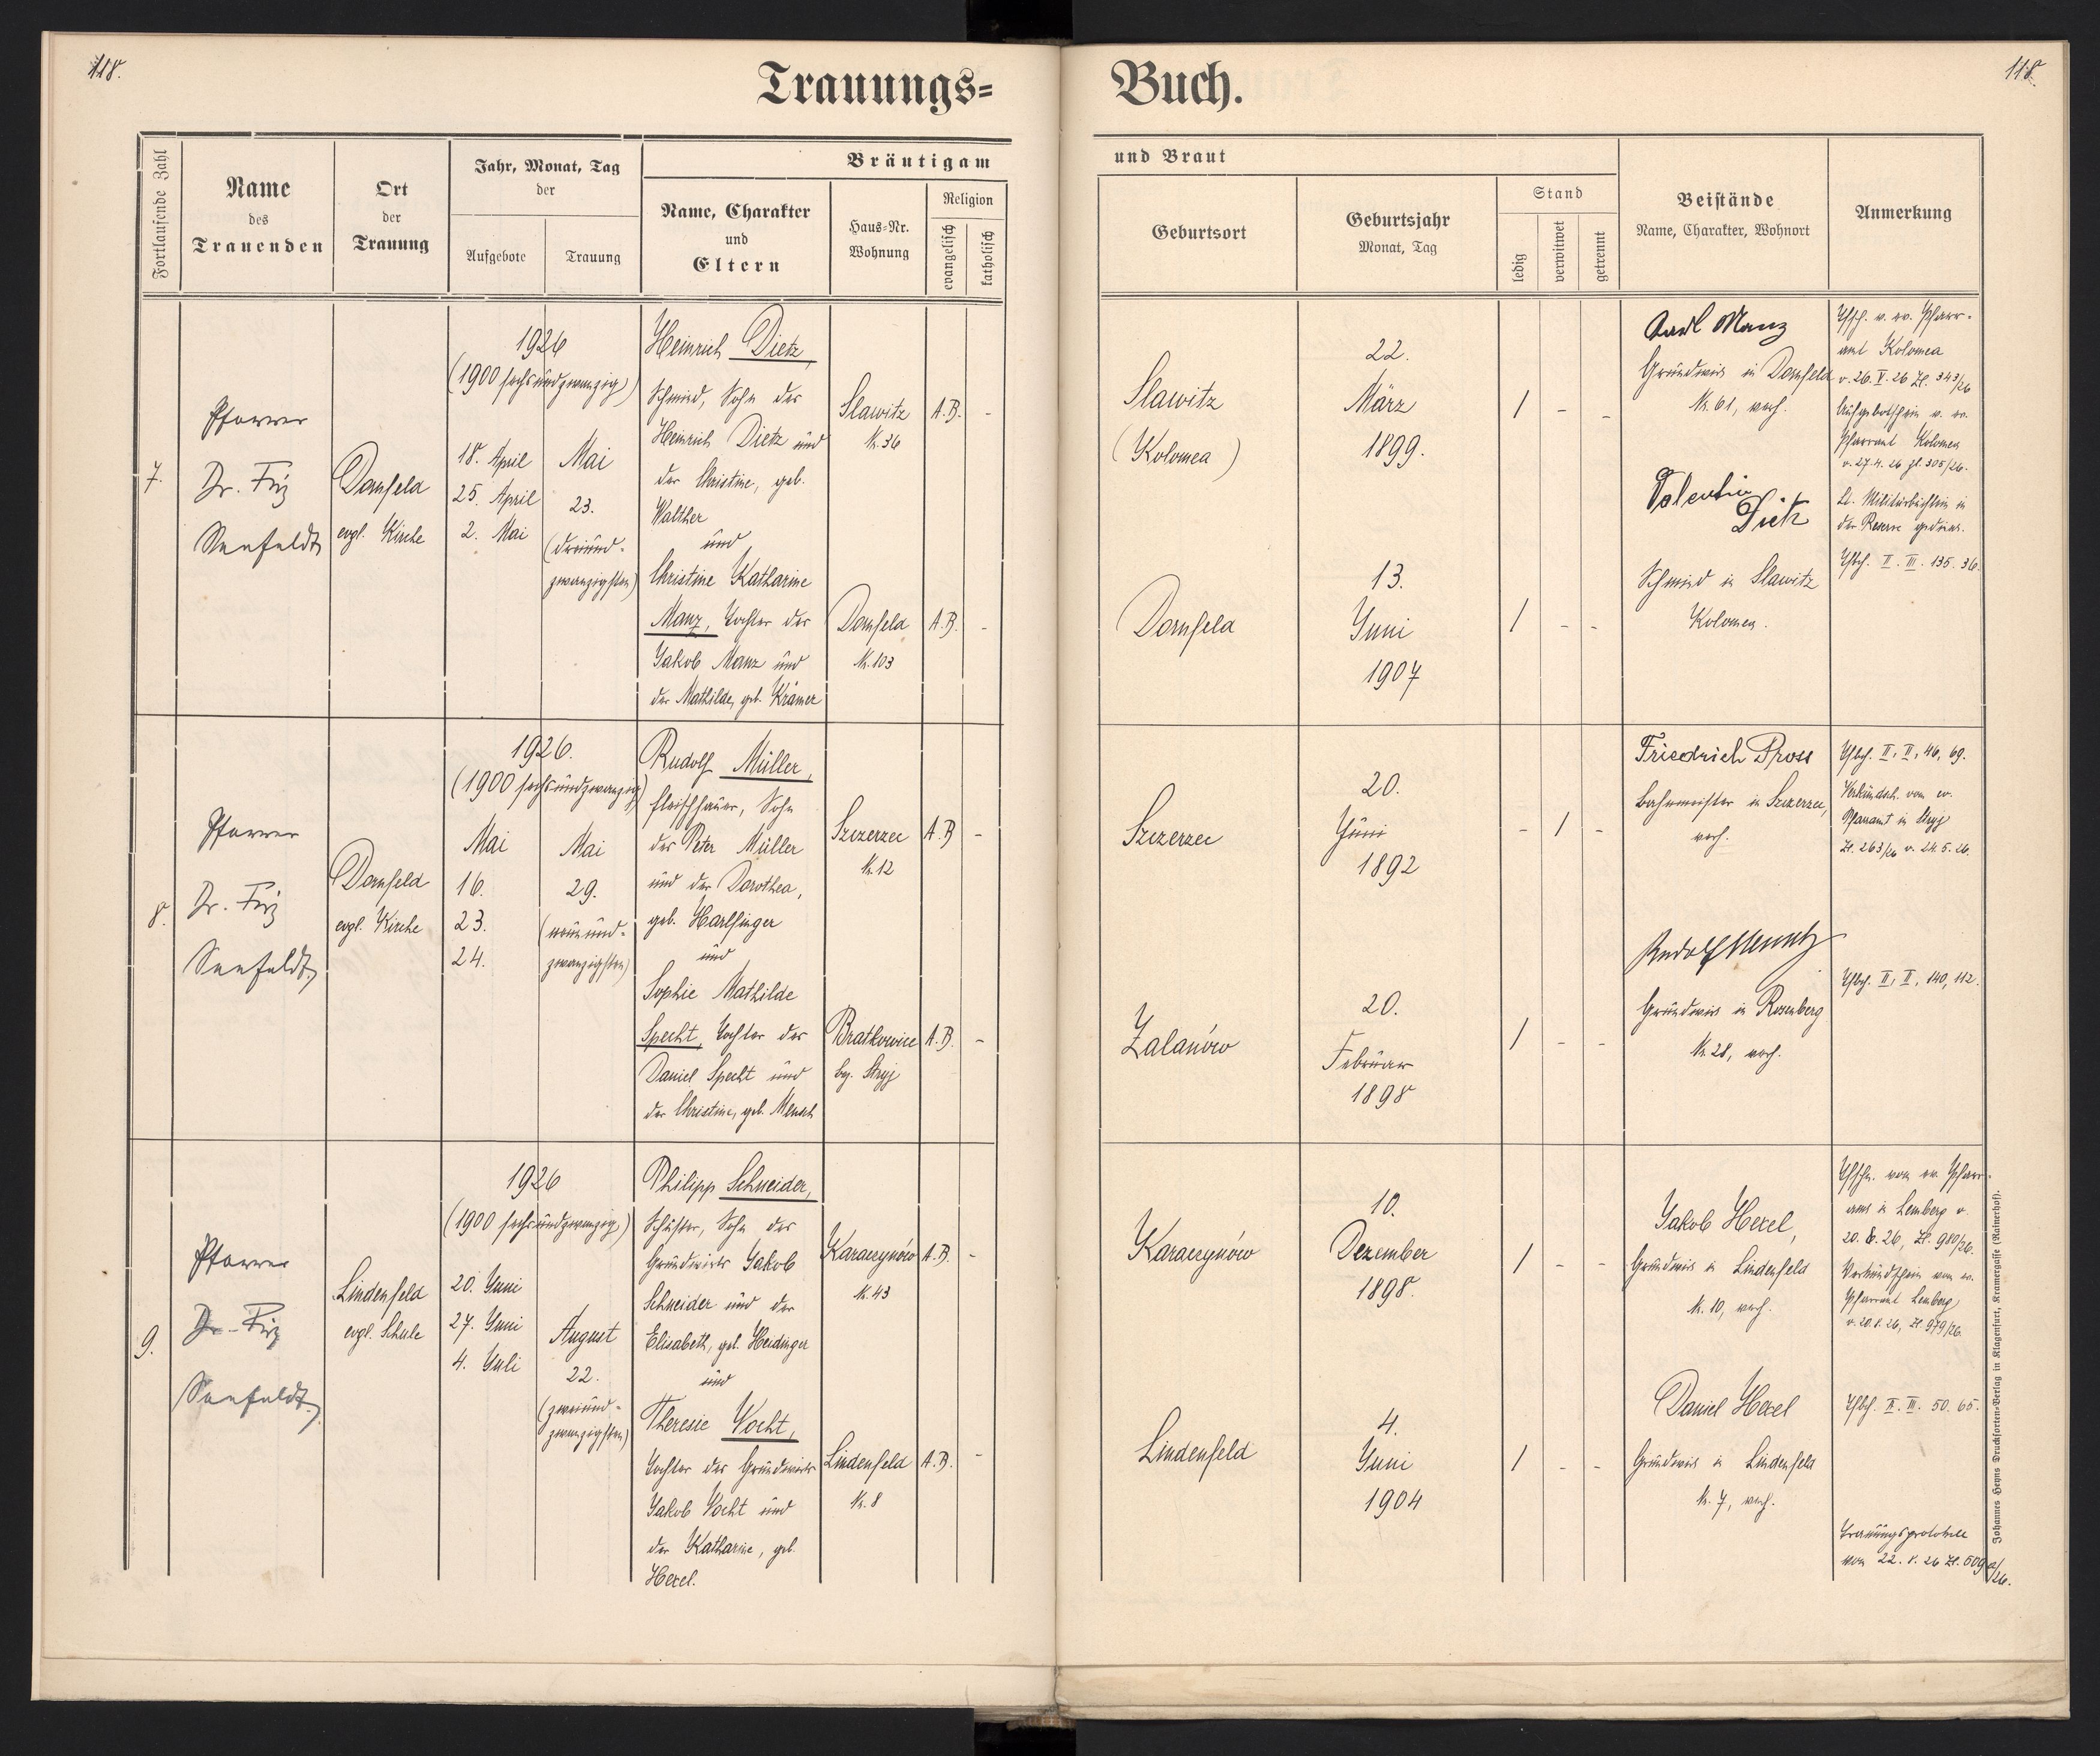 118.
Trauungs=
Buch.
118.
Fortlaufende Zahl
Name
des
Trauenden
Ort
der
Trauung
Jahr, Monat, Tag
der
Aufgebote
Trauung
Bräutigam
Name, Charakter
und
Eltern
Haus=Nr.
Wohnung
Religion
evangelisch
katholisch
und Braut
Geburtsort
Geburtsjahr
Monat, Tag
Stand
ledig
verwitwet
getrennt
Beistände
Name, Charakter, Wohnort
Anmerkung
7.
Pfarrer
Dr. Fritz
Seefeldt
Dornfeld
evgl. Kirche
1926
(1900 sechsundzwanzig)
18. April
25. April
2. Mai
Mai
23.
(dreiund-
zwanzigsten)
Heinrich Dietz,
Schmied, Sohn des
Heinrich Dietz und
der Christine, geb.
Walther
und
Christine Katharine
Manz, Tochter des
Jakob Manz und
der Mathilde, geb. Krämer
Slawitz
Nr. 36
A.B.
-
Dornfeld
Nr. 103
A.B.
-
Slawitz
(Kolomea)
22.
März
1899.
/ - -
Dornfeld
13.
Juni
1907
/ - -
Karl Manz
Grundwirt in Dornfeld
Nr. 61, verh.
Valentin
Dietz
Schmied in Slawitz
Kolomea.
amt Kolomea
v. 26. V. 26 Zl. 343/26
Aufgebotschein v. ev.
Pfarramt Kolomea
v. 27.4.26 Zl. 305/26.
Lt. Militärbüchlein in
der Reserve
II. III. 135. 36.
8.
Pfarrer
Dr. Fritz
Seefeldt
Dornfeld
evgl. Kirche
1926.
(1900 sechsundzwanzig)
Mai
16.
23.
24.
Mai
29.
(neunund-
zwanzigsten)
Rudolf Müller,
Fleischhauer, Sohn
des Peter Müller
und der Dorothea,
geb. Harlfinger
und
Sophie Mathilde
Specht, Tochter des
Daniel Specht und
der Christine, geb. Mensch
Szczerzec
Nr. 12
A.B
-
Bratkowice
bg. Stryj
A.B.
-
Szczerzec
20.
Juni
1892
- / -
Zalanów
20.
Februar
1898
/ - -
Friedrich Pross
Bahnmeister in Szczerzec,
verh.
Rudolf Mensch
Grundwirt in Rosenberg
Nr. 28, verh.
II, II, 46, 69.
Verkündsch. vom ev.
Pfarramt in Stryj
Zl. 263/26 v. 24.5.26.
II, II, 140, 112.
9.
Pfarrer
Dr. Fritz
Seefeldt
Lindenfeld
evgl. Schule
1926
(1900 sechsundzwanzig)
20. Juni
27. Juni
4. Juli
August
22.
(zweiund-
zwanzigsten)
Philipp Schneider,
Schuster, Sohn des
Grundwirts Jakob
Schneider und der
Elisabeth, geb. Heidinger
und
Theresie Vocht,
Tochter des Grundwirts
Jakob Vocht und
der Katharine, geb.
Hexel.
Karaczynów
Nr. 43
A.B.
-
Lindenfeld
Nr. 8
A.B.
-
Karaczynów
10.
Dezember
1898.
/ - -
Lindenfeld
4.
Juni
1904
/ - -
Jakob Hexel,
Grundwirt in Lindenfeld
Nr. 10, verh.
Daniel Hexel
Grundwirt in Lindenfeld
Nr. 7, verh.
vom ev. Pfarr-
amt in Lemberg v.
20. 8. 26, Zl. 980/26.
Verkündschein vom ev.
Pfarramt Lemberg
v. 20.8.26, Zl. 979/26.
II. III. 50. 65.
Trauungsprotokoll
vom 22. 8. 26 Zl. 609a/26.
Johannes Heyns Drucksorten=Verlag in Klagenfurt, Kramergasse (Rainerhof).